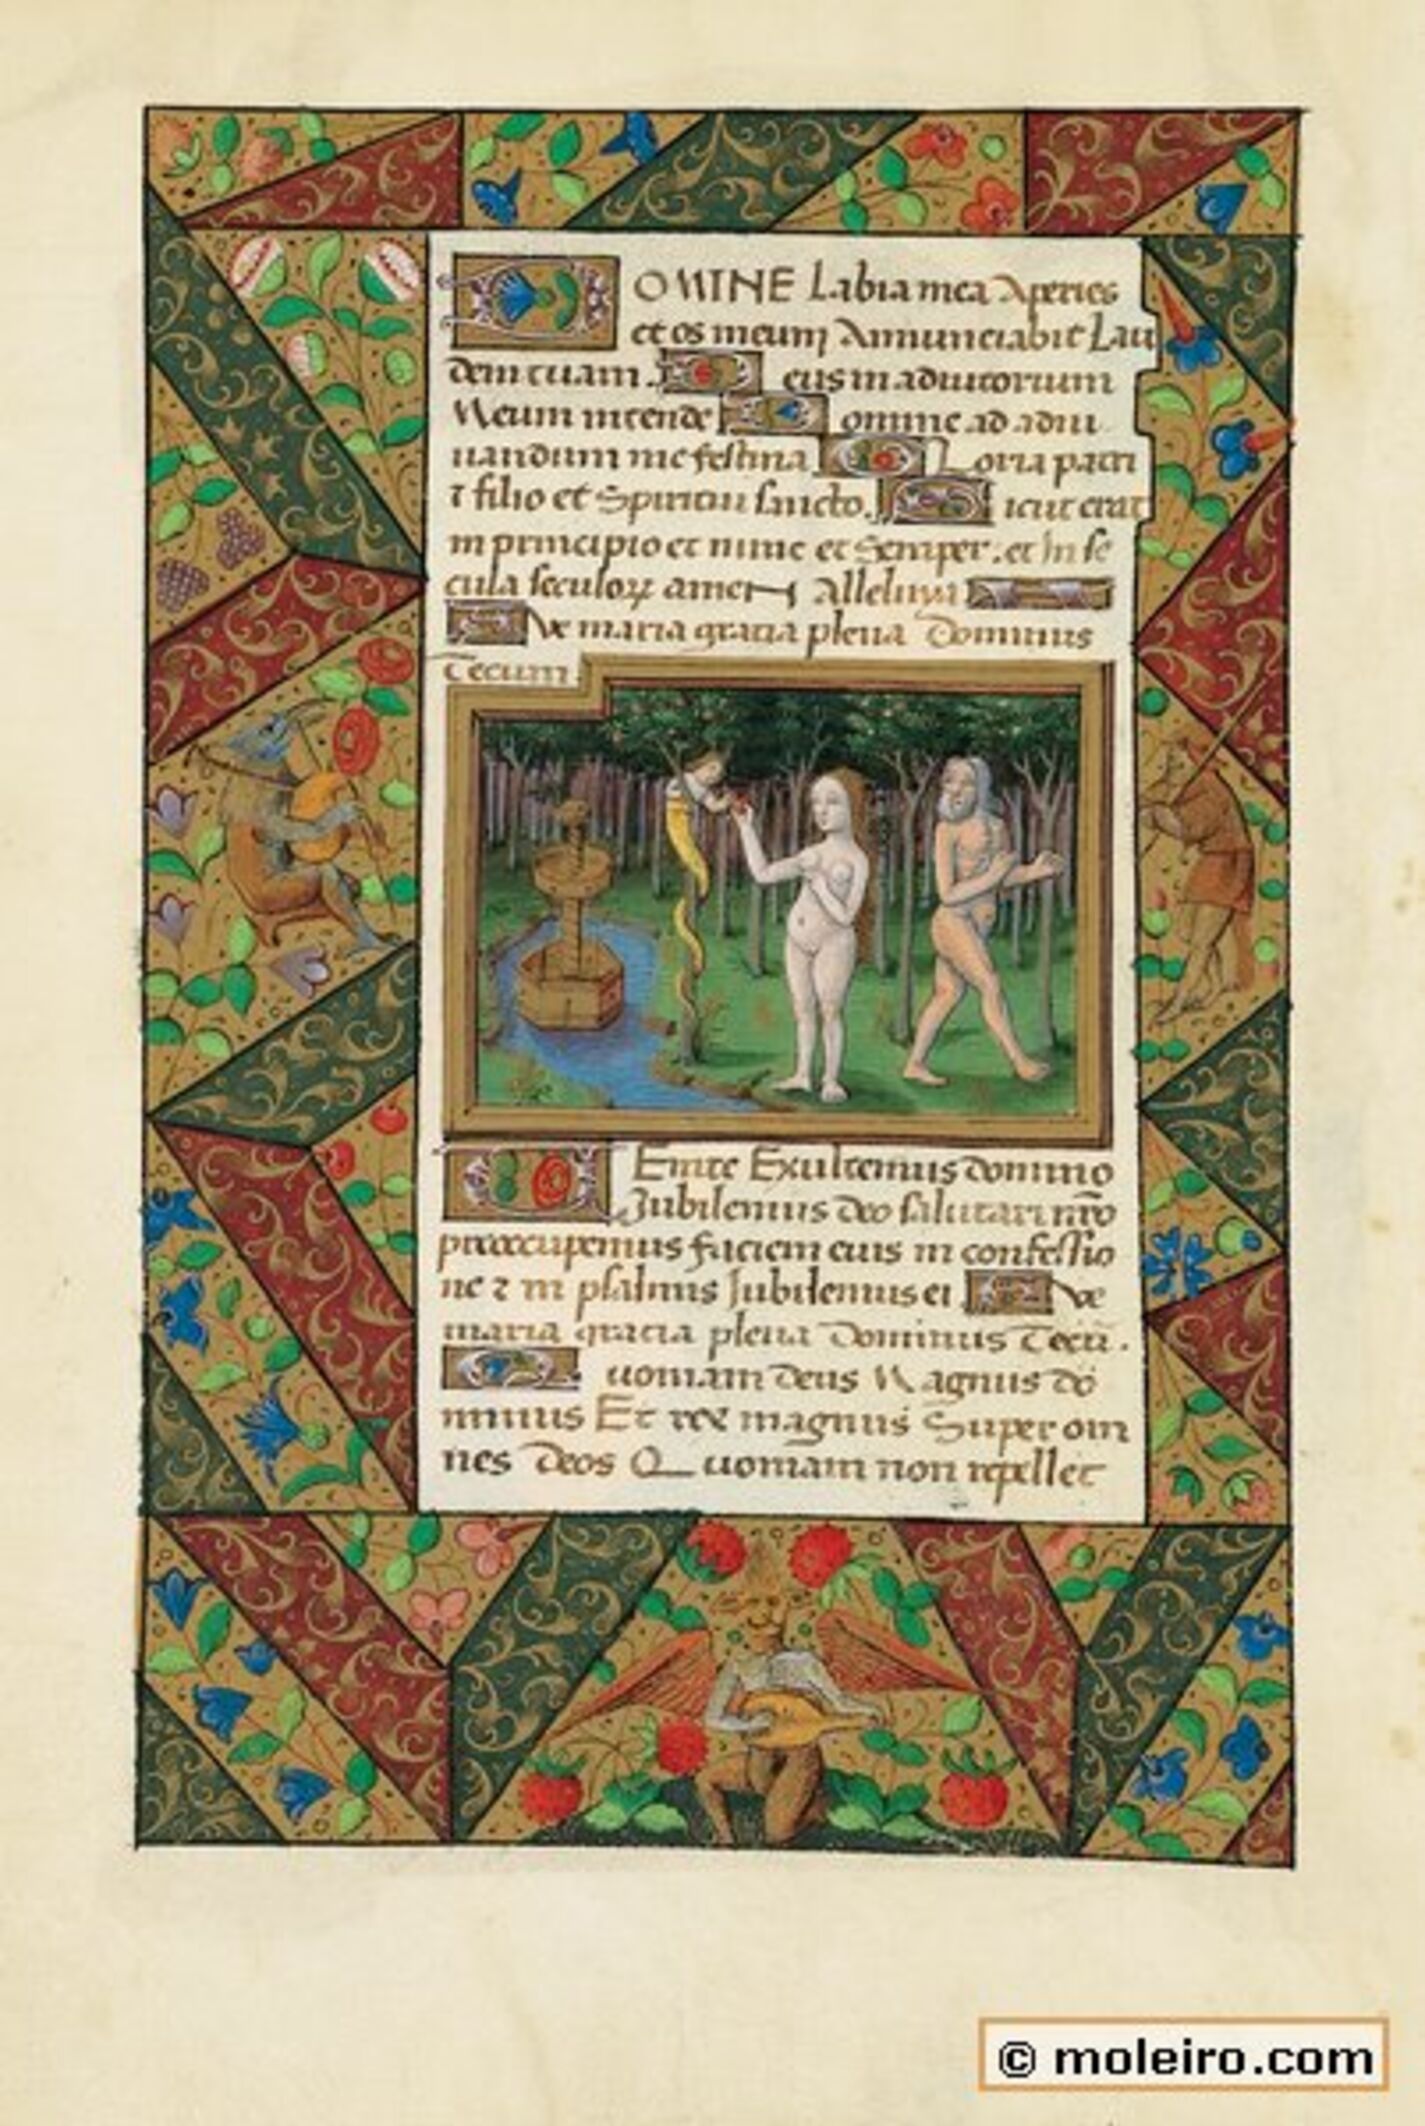 OMINE Labia mea Aperies
et os meum Annunciabit Lau
dem tuam. eus in adiutorium
Meum intende omine ad adiu
uandum me festina Loria patri
⁊ filio et Spiritui sancto. icut erat
in principio et nunc et Semper. et In se
cula seculoꝝ amen Alleluya
Ave maria gracia plena Dominus
Tecum.
Enite Exultemus domino
Jubilemus deo salutari nr̄o
preoccupemus faciem eius in confessio
ne ⁊ in psalmis Jubilemus ei Ave
maria gracia plena Dominus Tecū.
uoniam deus Magnus do
minus Et rex magnus Super om
nes Deos Quoniam non repellet
© moleiro.com